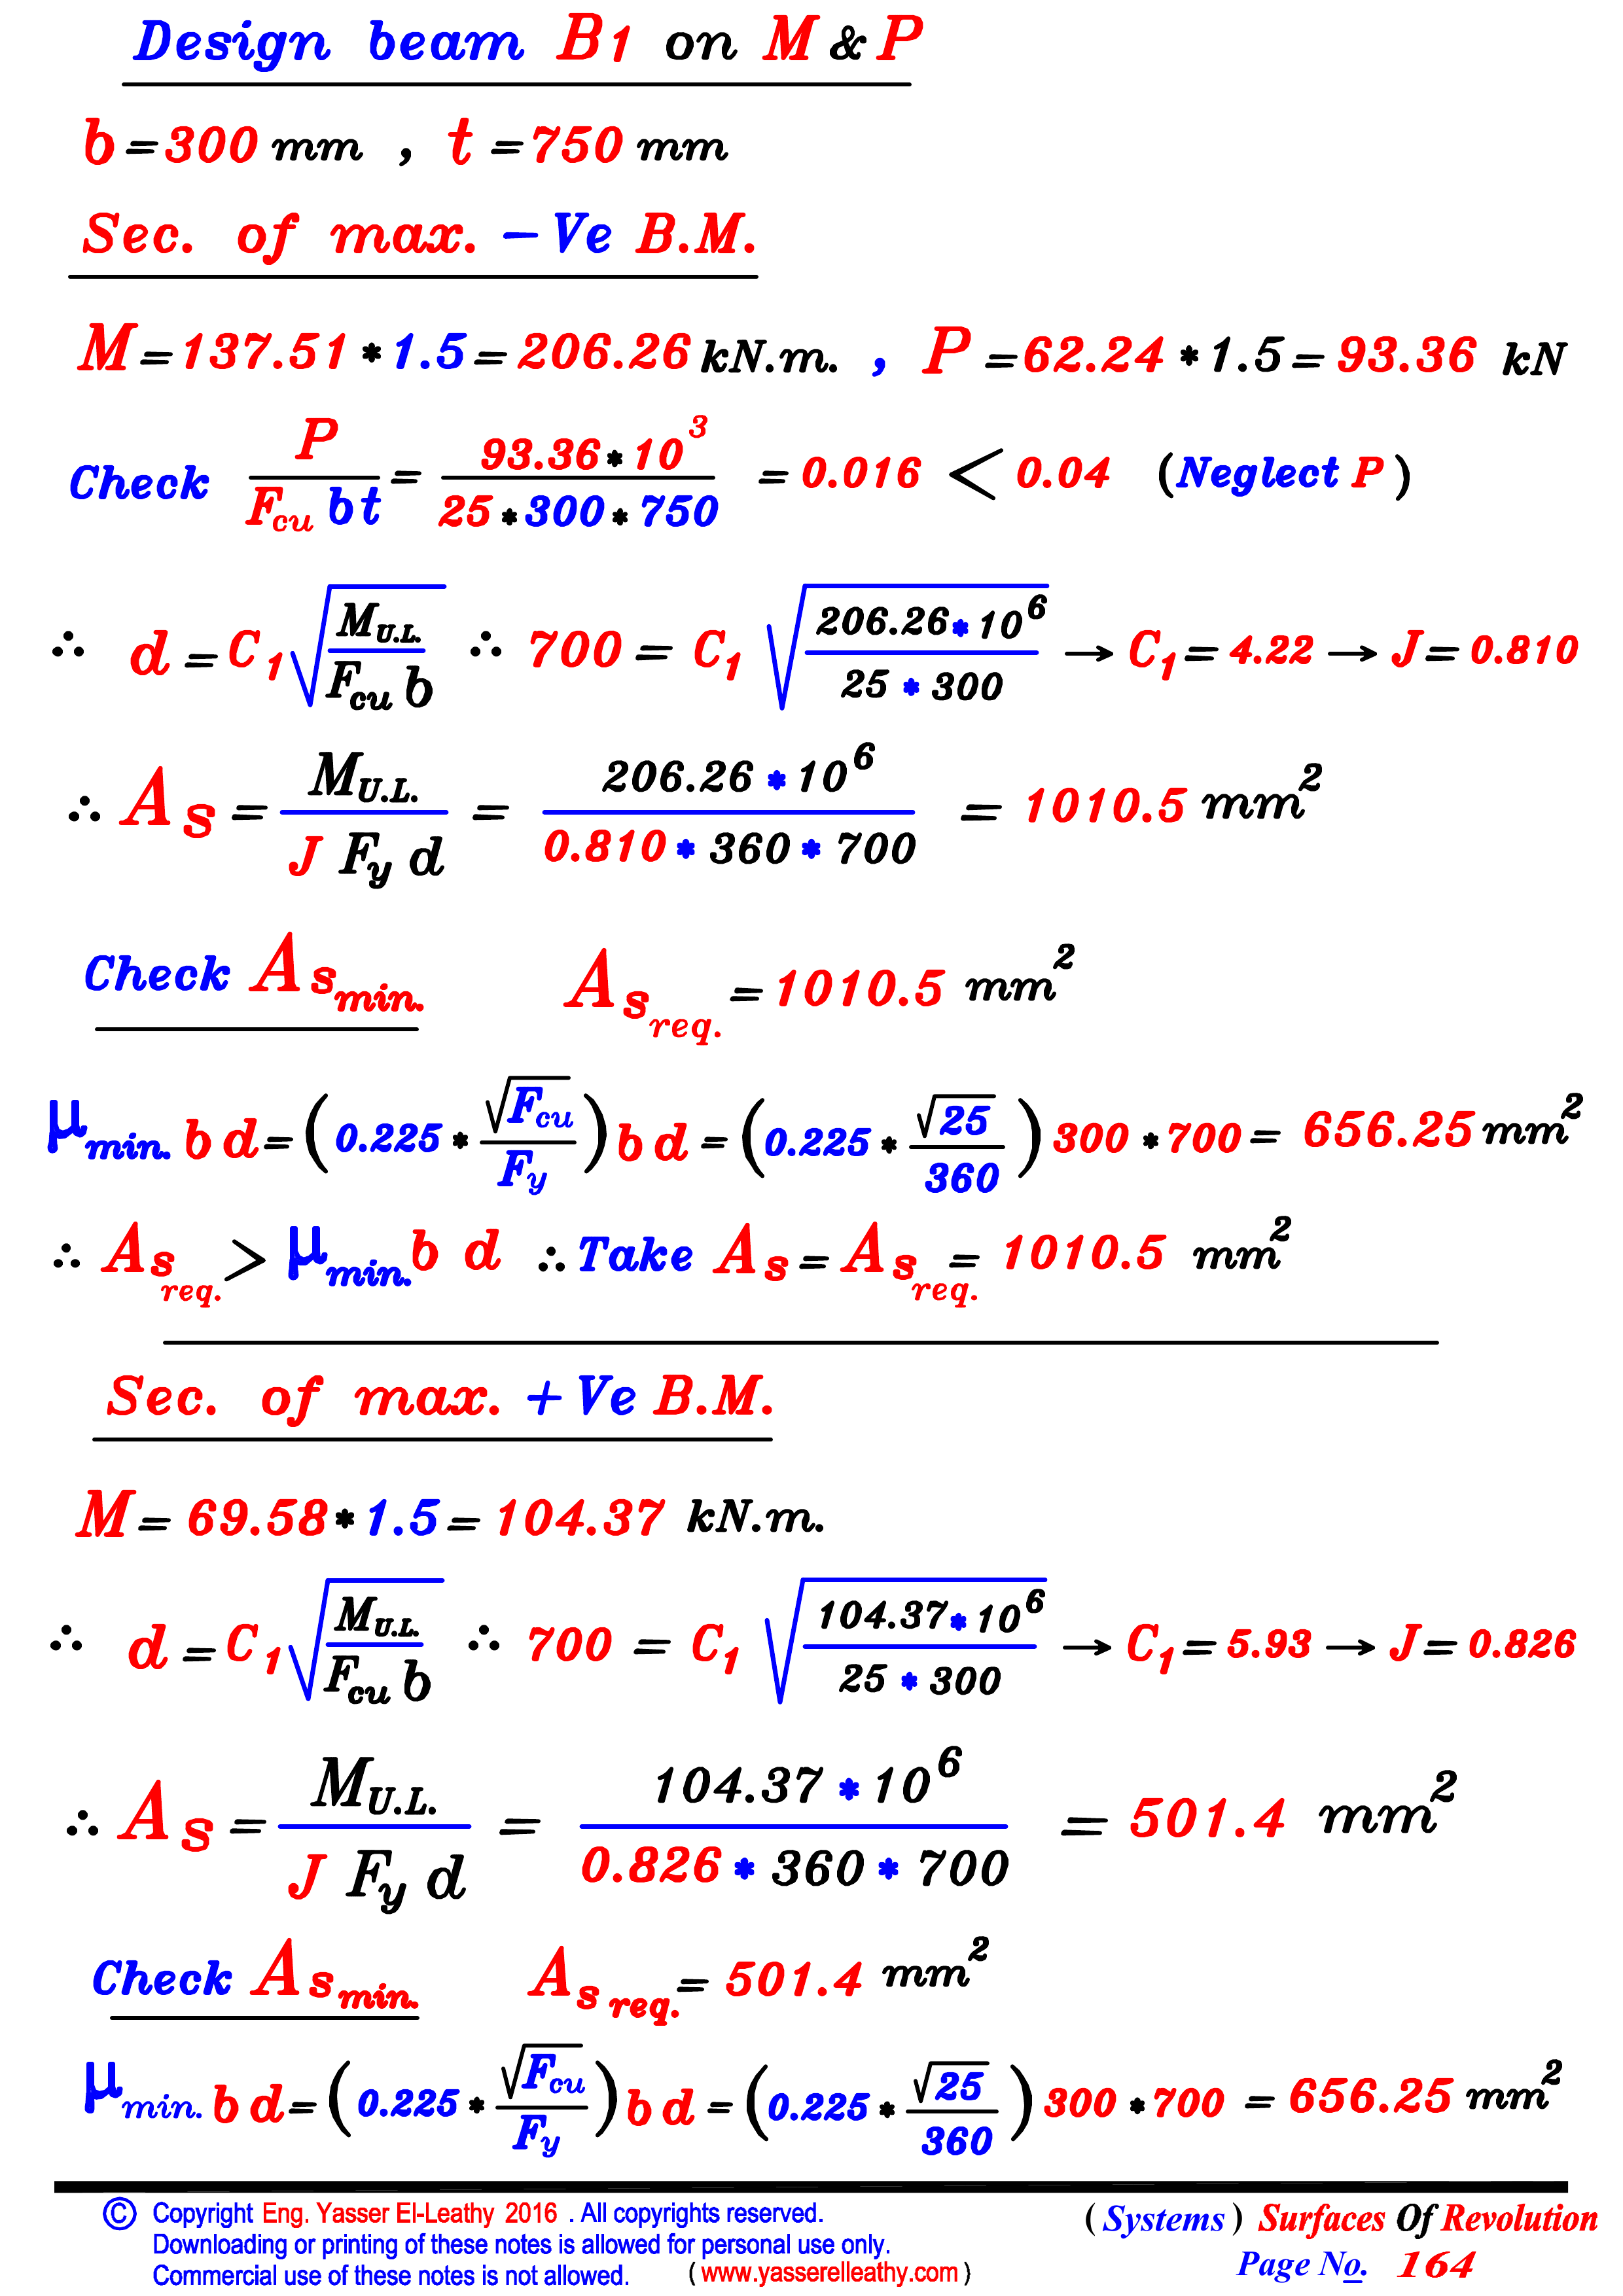 Design beam B1 on M & P
b = 300 mm , t = 750 mm
Sec. of max. -Ve B.M.
M = 137.51 * 1.5 = 206.26 kN.m. , P = 62.24 * 1.5 = 93.36 kN
Check P / (Fcu b t) = (93.36 * 10^3) / (25 * 300 * 750) = 0.016 < 0.04 (Neglect P)
∴ d = C1 √(M U.L. / (Fcu b)) ∴ 700 = C1 √((206.26 * 10^6) / (25 * 300)) → C1 = 4.22 → J = 0.810
∴ As = M U.L. / (J Fy d) = (206.26 * 10^6) / (0.810 * 360 * 700) = 1010.5 mm²
Check As min. As req. = 1010.5 mm²
μ min. b d = (0.225 * √Fcu / Fy) b d = (0.225 * √25 / 360) 300 * 700 = 656.25 mm²
∴ As req. > μ min. b d ∴ Take As = As req. = 1010.5 mm²
Sec. of max. +Ve B.M.
M = 69.58 * 1.5 = 104.37 kN.m.
∴ d = C1 √(M U.L. / (Fcu b)) ∴ 700 = C1 √((104.37 * 10^6) / (25 * 300)) → C1 = 5.93 → J = 0.826
∴ As = M U.L. / (J Fy d) = (104.37 * 10^6) / (0.826 * 360 * 700) = 501.4 mm²
Check As min. As req. = 501.4 mm²
μ min. b d = (0.225 * √Fcu / Fy) b d = (0.225 * √25 / 360) 300 * 700 = 656.25 mm²
© Copyright Eng. Yasser El-Leathy 2016 . All copyrights reserved.
Downloading or printing of these notes is allowed for personal use only.
Commercial use of these notes is not allowed. ( www.yasserelleathy.com )
( Systems ) Surfaces Of Revolution
Page No. 164